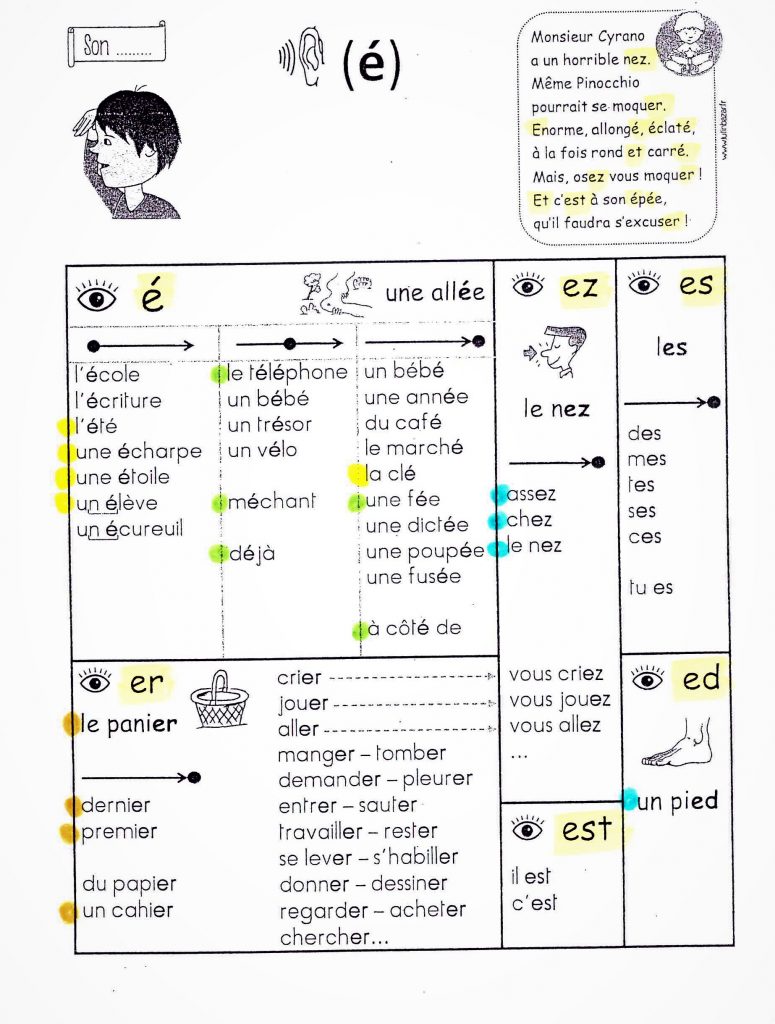 Son .........
(é)
Monsieur Cyrano
a un horrible nez.
Même Pinocchio
pourrait se moquer.
Enorme, allongé, éclaté,
à la fois rond et carré.
Mais, osez vous moquer !
Et c'est à son épée,
qu'il faudra s'excuser !
www.lutinbazar.fr
é
une allée
l'école
l'écriture
l'été
une écharpe
une étoile
un élève
un écureuil
le téléphone
un bébé
un trésor
un vélo
méchant
déjà
un bébé
une année
du café
le marché
la clé
une fée
une dictée
une poupée
une fusée
à côté de
ez
le nez
assez
chez
le nez
vous criez
vous jouez
vous allez
...
es
les
des
mes
tes
ses
ces
tu es
er
le panier
dernier
premier
du papier
un cahier
crier
jouer
aller
manger – tomber
demander – pleurer
entrer – sauter
travailler – rester
se lever – s'habiller
donner – dessiner
regarder – acheter
chercher...
est
il est
c'est
ed
un pied